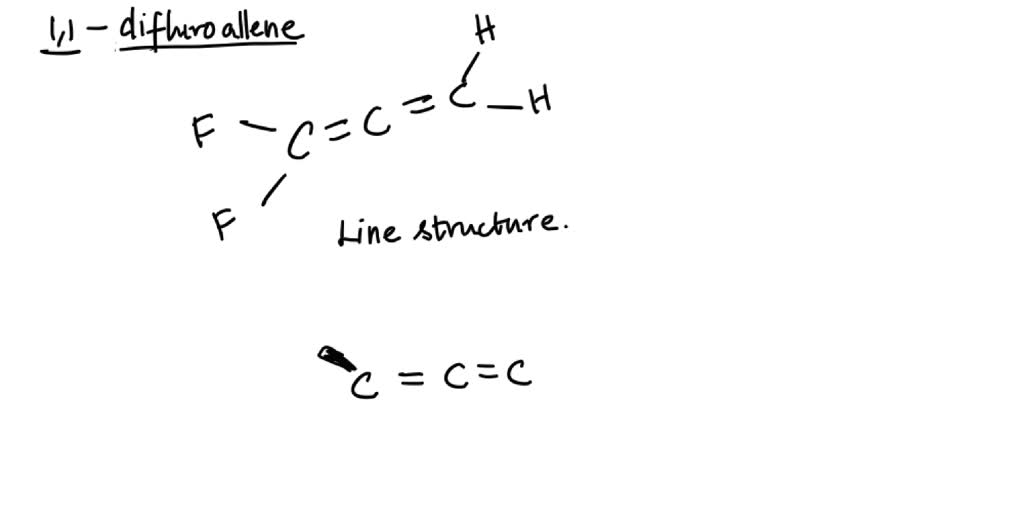 1,1 - difluroallene
H
F - C = C = C - H
F
Line structure.
C = C = C